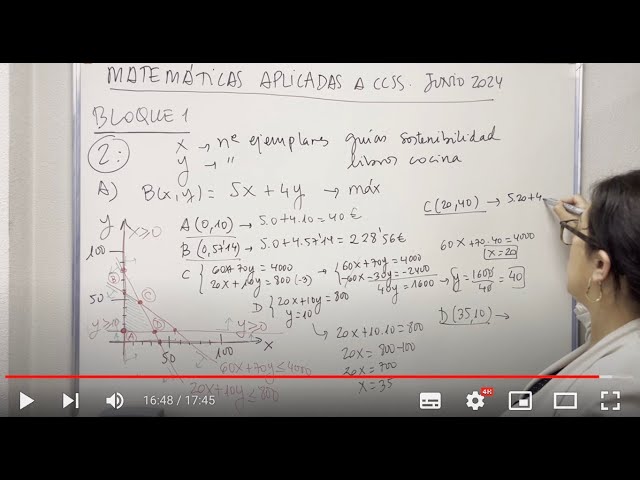 MATEMÁTICAS APLICADAS A CCSS. JUNIO 2024
BLOQUE 1
2: x → nº ejemplares guías sostenibilidad
y → " libros cocina
A) B(x,y) = 5x + 4y → máx
A(0,10) → 5.0+4.10 = 40 €
B(0,57'14) → 5.0+4.57'14 = 228'56 €
C { 60x+70y = 4000
20x+10y = 800 (-3)
→ { 60x+70y = 4000
-60x-30y = -2400
40y = 1600 → y = 1600/40 = 40
D { 20x+10y = 800
y = 10
→ 20x+10.10 = 800
20x = 800-100
20x = 700
x = 35
C(20,40) → 5.20+4
60x+70.40 = 4000
x = 20
D(35,10) →
y
x≥0
100
50
B
C
A
D
y≥0
50
100
x
60x+70y≤4000
20x+10y≤800
16:48 / 17:45
4K